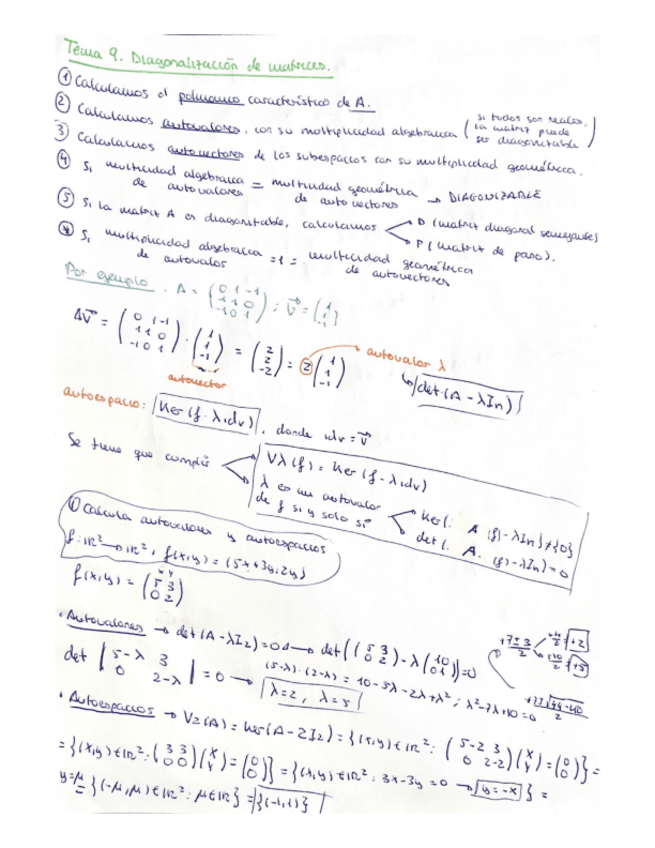 Tema 9. Diagonalización de matrices.
① Calculamos el polinomio característico de A.
② Calculamos autovalores, con su multiplicidad algebraica (si todos son reales, la matriz puede ser diagonizable)
③ Calculamos autovectores de los subespacios con su multiplicidad geométrica.
④ Si multicidad algebraica de autovalores = multiuidad geométrica de autovectores → DIAGONIZABLE
⑤ Si la matriz A es diagonizable, calculamos D (matriz diagonal semejante) P (matriz de paso).
Si multiplicidad algebraica de autovalos = 1 = multicidad geométrica de autovectores
Por ejemplo. A = (0 1 -1 / 1 1 0 / -1 0 1) ; V⃗ = (1 / 1 / -1)
AV⃗ = (0 1 -1 / 1 1 0 / -1 0 1) · (1 / 1 / -1) = (2 / 2 / -2) = 2 (1 / 1 / -1) autovalor λ
autovector
det(A - λIn)
autoespacio: Ker(f - λidv), donde idv = V⃗
Se tiene que cumplir
Vλ(f) = Ker(f - λidv)
λ es un autovalor de f si y solo si
Ker(A(f) - λIn) ≠ {0}
det(A(f) - λIn) = 0
① Calcula autovalores y autoespacios
f: ℝ² → ℝ², f(x,y) = (5x+3y, 2y)
f(x,y) = (5 3 / 0 2)
· Autovalores → det(A - λI2) = 0 → det((5 3 / 0 2) - λ(1 0 / 0 1)) = 0
det |5-λ 3 / 0 2-λ| = 0 → (5-λ)·(2-λ) = 10 - 5λ - 2λ + λ²; λ² - 7λ + 10 = 0
λ=2, λ=5
+7±3 / 2
+7±√49-40 / 2
· Autoespacios → V2(A) = Ker(A - 2I2) = {(x,y) ∈ ℝ²: (5-2 3 / 0 2-2)(x / y) = (0 / 0)} =
= {(x,y) ∈ ℝ²: (3 3 / 0 0)(x / y) = (0 / 0)} = {(x,y) ∈ ℝ²: 3x-3y = 0 → y=-x} =
y=μ = {(-μ, μ) ∈ ℝ²: μ ∈ ℝ} = {(-1,1)}